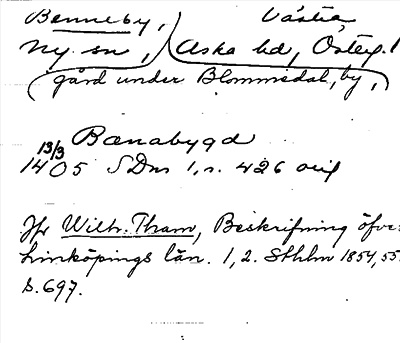 Benneby, Västra
Ny sn, Aska hd, Östergl
gård under Blommedal, by,
Bænabygd
13/3
1405 SDns 1, s. 426 orig
Jfr Wilh. Tham, Beskrifning öfver
Linköpings län. 1, 2. Sthlm 1854, 55.
S. 697.